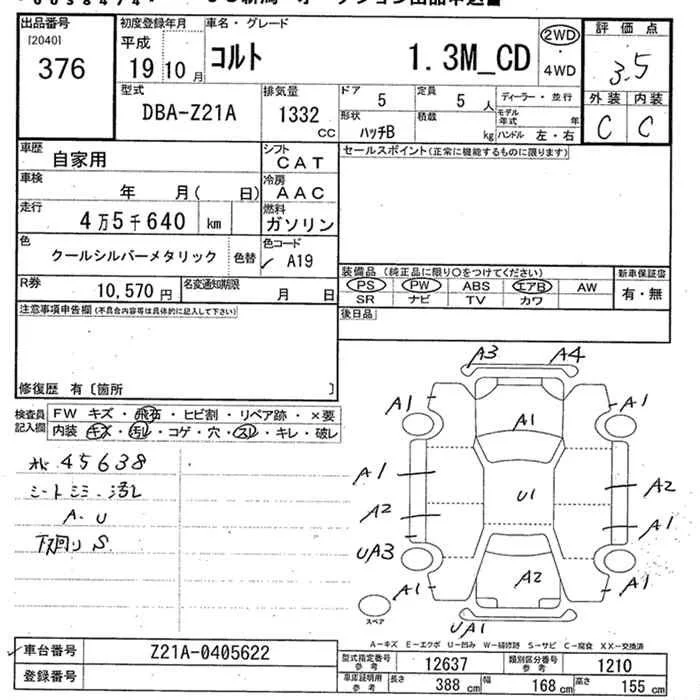 出品番号
[2040]
376
初度登録年月
平成
19 10月
車名・グレード
コルト 1.3M_CD
2WD
・
4WD
評価点
3.5
型式
DBA-Z21A
排気量
1332 CC
ドア 5
定員 5 人
ディーラー・並行
モデル年式 年
外装 内装
C C
形状 ハッチB
積載 kg
ハンドル 左・右
車歴 自家用
シフト CAT
セールスポイント(正常に機能するものに限ります)
車検 年 月( 日)
冷房 AAC
走行 4万5千640 km
燃料 ガソリン
色 クールシルバーメタリック 色替
色コード A19
装備品 (純正品に限り○をつけてください)
新車保証書
PS PW ABS エアB AW
SR ナビ TV カワ
有・無
R券 10,570円
名変通知期限 月 日
注意事項申告欄(不具合内容等は具体的に記入して下さい)
後日品
修復歴 有〔箇所 〕
検査員記入欄
FW キズ・飛石・ヒビ割・リペア跡・×要
内装 キズ・汚レ・コゲ・穴・スレ・キレ・破レ
45638
A.U
下廻り S
A3 A4
A1 A1
A1
A1 U1 A2
A2 A1
UA3
A1 A2 A1
スペア
UA1
A-キズ E-エクボ U-凹み W-補修跡 S-サビ C-腐食 XX-交換済
車台番号 Z21A-0405622
型式指定番号 参考 12637
類別区分番号 参考 1210
登録番号
車庫証明用 参考 長さ 388 cm 幅 168 cm 高さ 155 cm